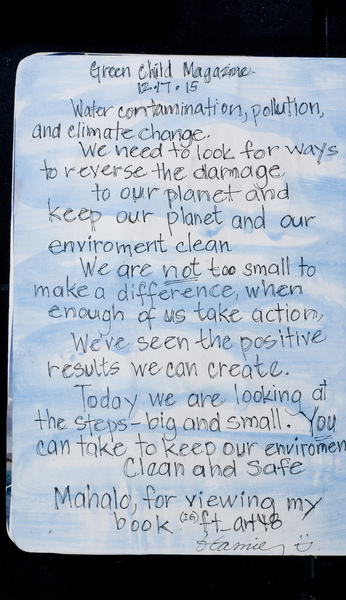 Green Child Magazine.
12.17.15
Water contamination, pollution,
and climate change.
We need to look for ways
to reverse the damage
to our planet and
keep our planet and our
enviroment clean
We are not too small to
make a difference, when
enough of us take action,
We've seen the positive
results we can create.
Today we are looking at
the steps-big and small. You
can take, to keep our enviromen
Clean and Safe
Mahalo, for viewing my
book (IG) ft_art48